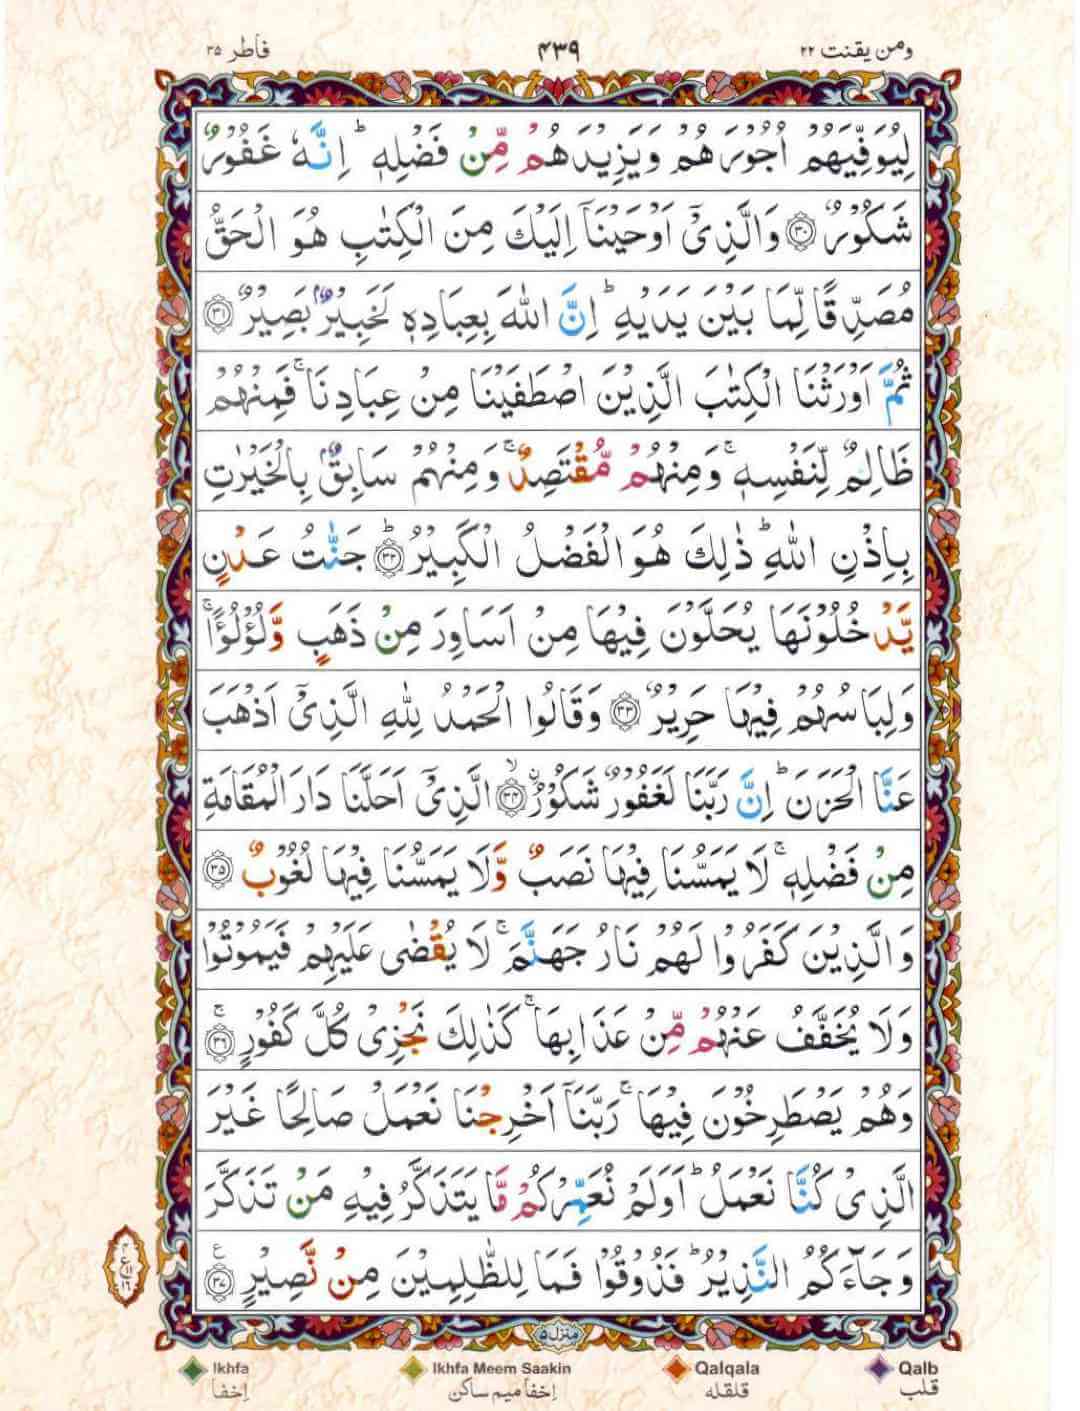 ومن یقنت ۲۲ ۴۳۹ فاطر ۳۵
لِيُوَفِّيَهُمْ اُجُوْرَهُمْ وَيَزِيْدَهُمْ مِّنْ فَضْلِهٖ ؕ اِنَّهٗ غَفُوْرٌ
شَكُوْرٌ ﴿۳۰﴾ وَالَّذِىْۤ اَوْحَيْنَاۤ اِلَيْكَ مِنَ الْكِتٰبِ هُوَ الْحَقُّ
مُصَدِّقًا لِّمَا بَيْنَ يَدَيْهِ ؕ اِنَّ اللّٰهَ بِعِبَادِهٖ لَخَبِيْرٌۢ بَصِيْرٌ ﴿۳۱﴾
ثُمَّ اَوْرَثْنَا الْكِتٰبَ الَّذِيْنَ اصْطَفَيْنَا مِنْ عِبَادِنَا ۚ فَمِنْهُمْ
ظَالِمٌ لِّنَفْسِهٖ ۚ وَمِنْهُمْ مُّقْتَصِدٌ ۚ وَمِنْهُمْ سَابِقٌۢ بِالْخَيْرٰتِ
بِاِذْنِ اللّٰهِ ؕ ذٰلِكَ هُوَ الْفَضْلُ الْكَبِيْرُ ؕ ﴿۳۲﴾ جَنّٰتُ عَدْنٍ
يَّدْخُلُوْنَهَا يُحَلَّوْنَ فِيْهَا مِنْ اَسَاوِرَ مِنْ ذَهَبٍ وَّلُؤْلُؤًا ۚ
وَلِبَاسُهُمْ فِيْهَا حَرِيْرٌ ﴿۳۳﴾ وَقَالُوا الْحَمْدُ لِلّٰهِ الَّذِىْۤ اَذْهَبَ
عَنَّا الْحَزَنَ ؕ اِنَّ رَبَّنَا لَغَفُوْرٌ شَكُوْرُ ۙ ﴿۳۴﴾ ۨالَّذِىْۤ اَحَلَّنَا دَارَ الْمُقَامَةِ
مِنْ فَضْلِهٖ ۚ لَا يَمَسُّنَا فِيْهَا نَصَبٌ وَّلَا يَمَسُّنَا فِيْهَا لُغُوْبٌ ﴿۳۵﴾
وَالَّذِيْنَ كَفَرُوْا لَهُمْ نَارُ جَهَنَّمَ ۚ لَا يُقْضٰى عَلَيْهِمْ فَيَمُوْتُوْا
وَلَا يُخَفَّفُ عَنْهُمْ مِّنْ عَذَابِهَا ؕ كَذٰلِكَ نَجْزِىْ كُلَّ كَفُوْرٍ ۚ ﴿۳۶﴾
وَهُمْ يَصْطَرِخُوْنَ فِيْهَا ۚ رَبَّنَاۤ اَخْرِجْنَا نَعْمَلْ صَالِحًا غَيْرَ
الَّذِىْ كُنَّا نَعْمَلُ ؕ اَوَلَمْ نُعَمِّرْكُمْ مَّا يَتَذَكَّرُ فِيْهِ مَنْ تَذَكَّرَ
وَجَآءَكُمُ النَّذِيْرُ ؕ فَذُوْقُوْا فَمَا لِلظّٰلِمِيْنَ مِنْ نَّصِيْرٍ ﴿۳۷﴾ ع
منزل ۵
Ikhfa Ikhfa Meem Saakin Qalqala Qalb
اِخفا اِخفا میم ساکن قلقلہ قلب